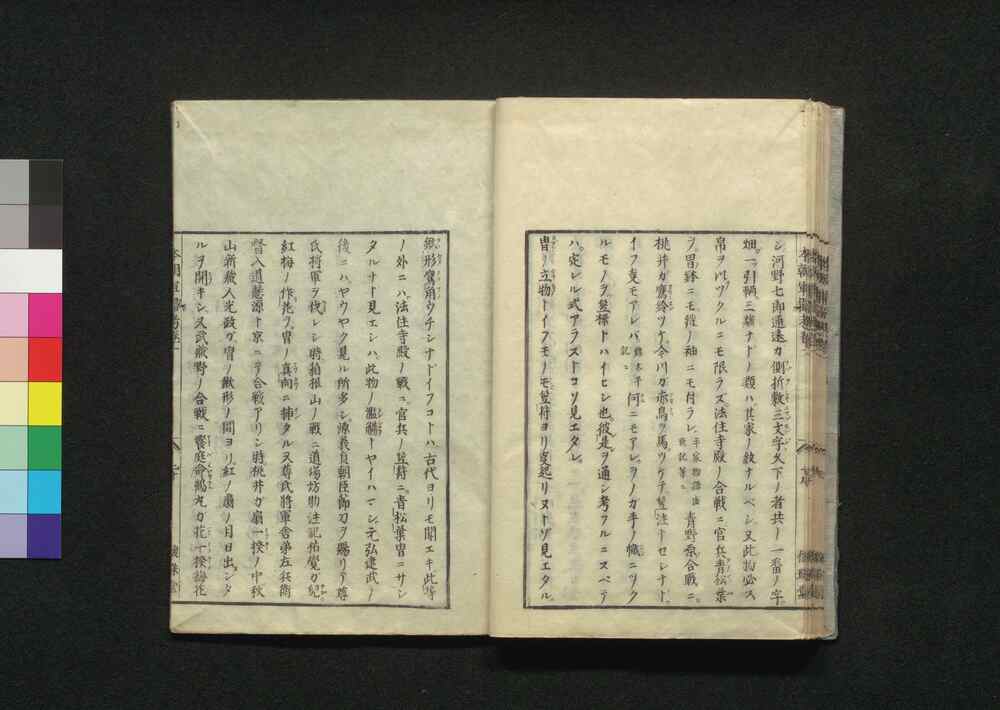 シ河野七郎通遠カ側折敷三文字久下ノ者共ノ一番ノ字
畑ノ一引輌三雄ナトノ類ハ其家ノ紋ナルベシ又此物必ス
帛ヲ以ツクルニモ限ラズ法住寺殿ノ合戦ニ官兵青松葉
ヲ。冑鉢ニモ鎧ノ袖ニモ付ラレ。平家物語 盛衰記等ニ 青野原合戦ニ。
桃井ガ鷹鈴ツケ。今川ガ赤鳥ヲ馬ツケテ笠注トセシナト、
イフ支モアレバ 難太平記ニ 何ニモアレ。ヲノカ手ノ幟ニツク
ルモノヲ。笠標トハイヒシ也彼是ヲ通シ考フルニスベテ
ハ。定レル式アラストコソ見エタレ。
冑ノ立物トイフモノモ笠符ヨリ事起リヌトゾ見エタル
鍬形鷹角ウチシナドイフコトハ古代ヨリモ聞エキ此等
ノ外ニハ。法住寺殿ノ戦ニ。官兵ノ笠符ニ。青松葉冑ニサシ
タルナト見エシハ。此物ノ濫觴トヤイハマシ元弘建武ノ
後ニハ。ヤウヤク見ル所多シ源義貞朝臣節刀ヲ賜リテ尊
氏将軍ヲ伐レシ時箱根山ノ戦ニ道場坊助注記祐覺ガ紀
紅梅ノ作花ヲ。冑ノ真向ニ挿タル又尊氏将軍舎弟左兵衛
督入道慧源ト京ニテ合戦アリシ時桃井ガ扇一揆ノ中秋
山新蔵人光政ガ冑ノ鍬形ノ間ヨリ紅ノ扇ノ月日出シタ
ルヲ開キシ又武蔵野ノ合戦ニ饗庭命鶴丸カ花一揆梅花